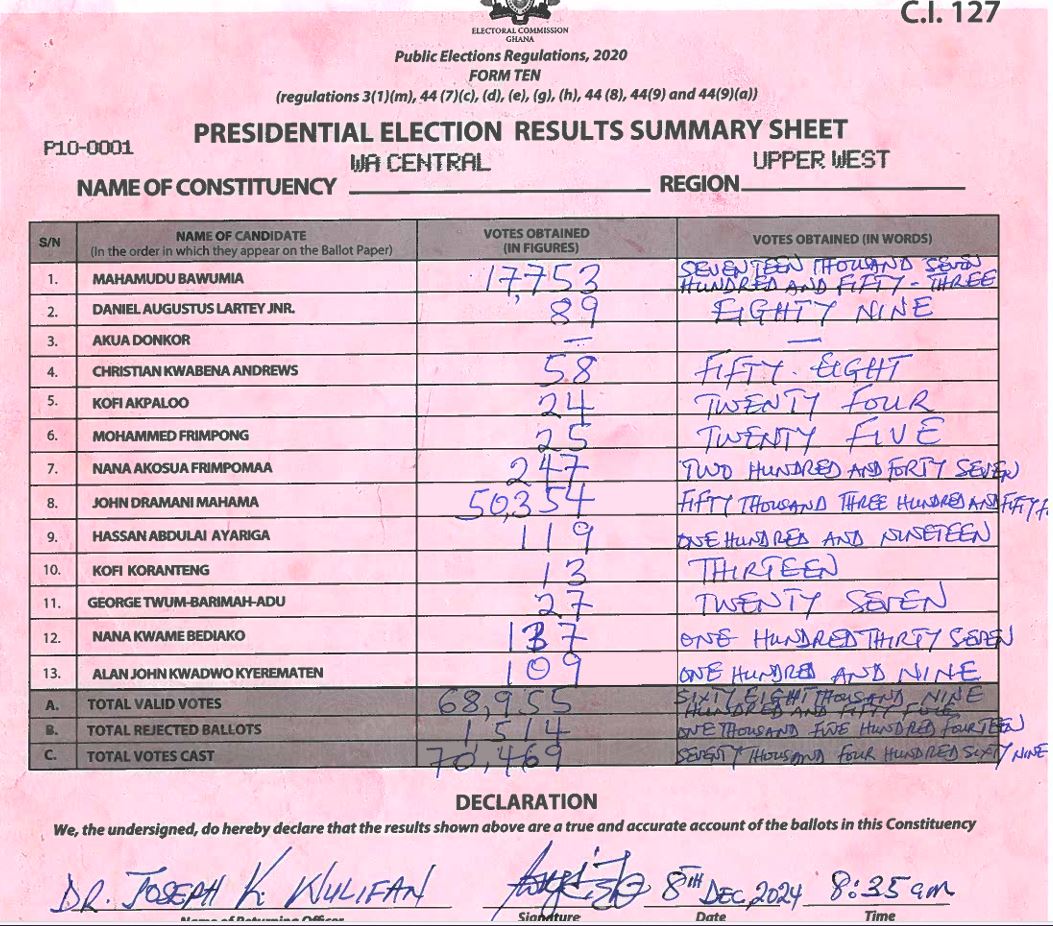 C.I. 127
ELECTORAL COMMISSION
GHANA
Public Elections Regulations, 2020
FORM TEN
(regulations 3(1)(m), 44 (7)(c), (d), (e), (g), (h), 44 (8), 44(9) and 44(9)(a))
PRESIDENTIAL ELECTION RESULTS SUMMARY SHEET
P10-0001
WA CENTRAL UPPER WEST
NAME OF CONSTITUENCY REGION
S/N NAME OF CANDIDATE (In the order in which they appear on the Ballot Paper) VOTES OBTAINED (IN FIGURES) VOTES OBTAINED (IN WORDS)
1. MAHAMUDU BAWUMIA 17,753 SEVENTEEN THOUSAND SEVEN HUNDRED AND FIFTY-THREE
2. DANIEL AUGUSTUS LARTEY JNR. 89 EIGHTY NINE
3. AKUA DONKOR — —
4. CHRISTIAN KWABENA ANDREWS 58 FIFTY-EIGHT
5. KOFI AKPALOO 24 TWENTY FOUR
6. MOHAMMED FRIMPONG 25 TWENTY FIVE
7. NANA AKOSUA FRIMPOMAA 247 TWO HUNDRED AND FORTY SEVEN
8. JOHN DRAMANI MAHAMA 50,354 FIFTY THOUSAND THREE HUNDRED AND FIFTY F
9. HASSAN ABDULAI AYARIGA 119 ONE HUNDRED AND NINETEEN
10. KOFI KORANTENG 13 THIRTEEN
11. GEORGE TWUM-BARIMAH-ADU 27 TWENTY SEVEN
12. NANA KWAME BEDIAKO 137 ONE HUNDRED THIRTY SEVEN
13. ALAN JOHN KWADWO KYEREMATEN 109 ONE HUNDRED AND NINE
A. TOTAL VALID VOTES 68,955 SIXTY EIGHT THOUSAND NINE HUNDRED AND FIFTY FIVE
B. TOTAL REJECTED BALLOTS 1514 ONE THOUSAND FIVE HUNDRED FOURTEEN
C. TOTAL VOTES CAST 70,469 SEVENTY THOUSAND FOUR HUNDRED SIXTY NINE
DECLARATION
We, the undersigned, do hereby declare that the results shown above are a true and accurate account of the ballots in this Constituency
DR. JOSEPH K. WULIFAN 8TH DEC, 2024 8:35 am
Name of Returning Officer Signature Date Time